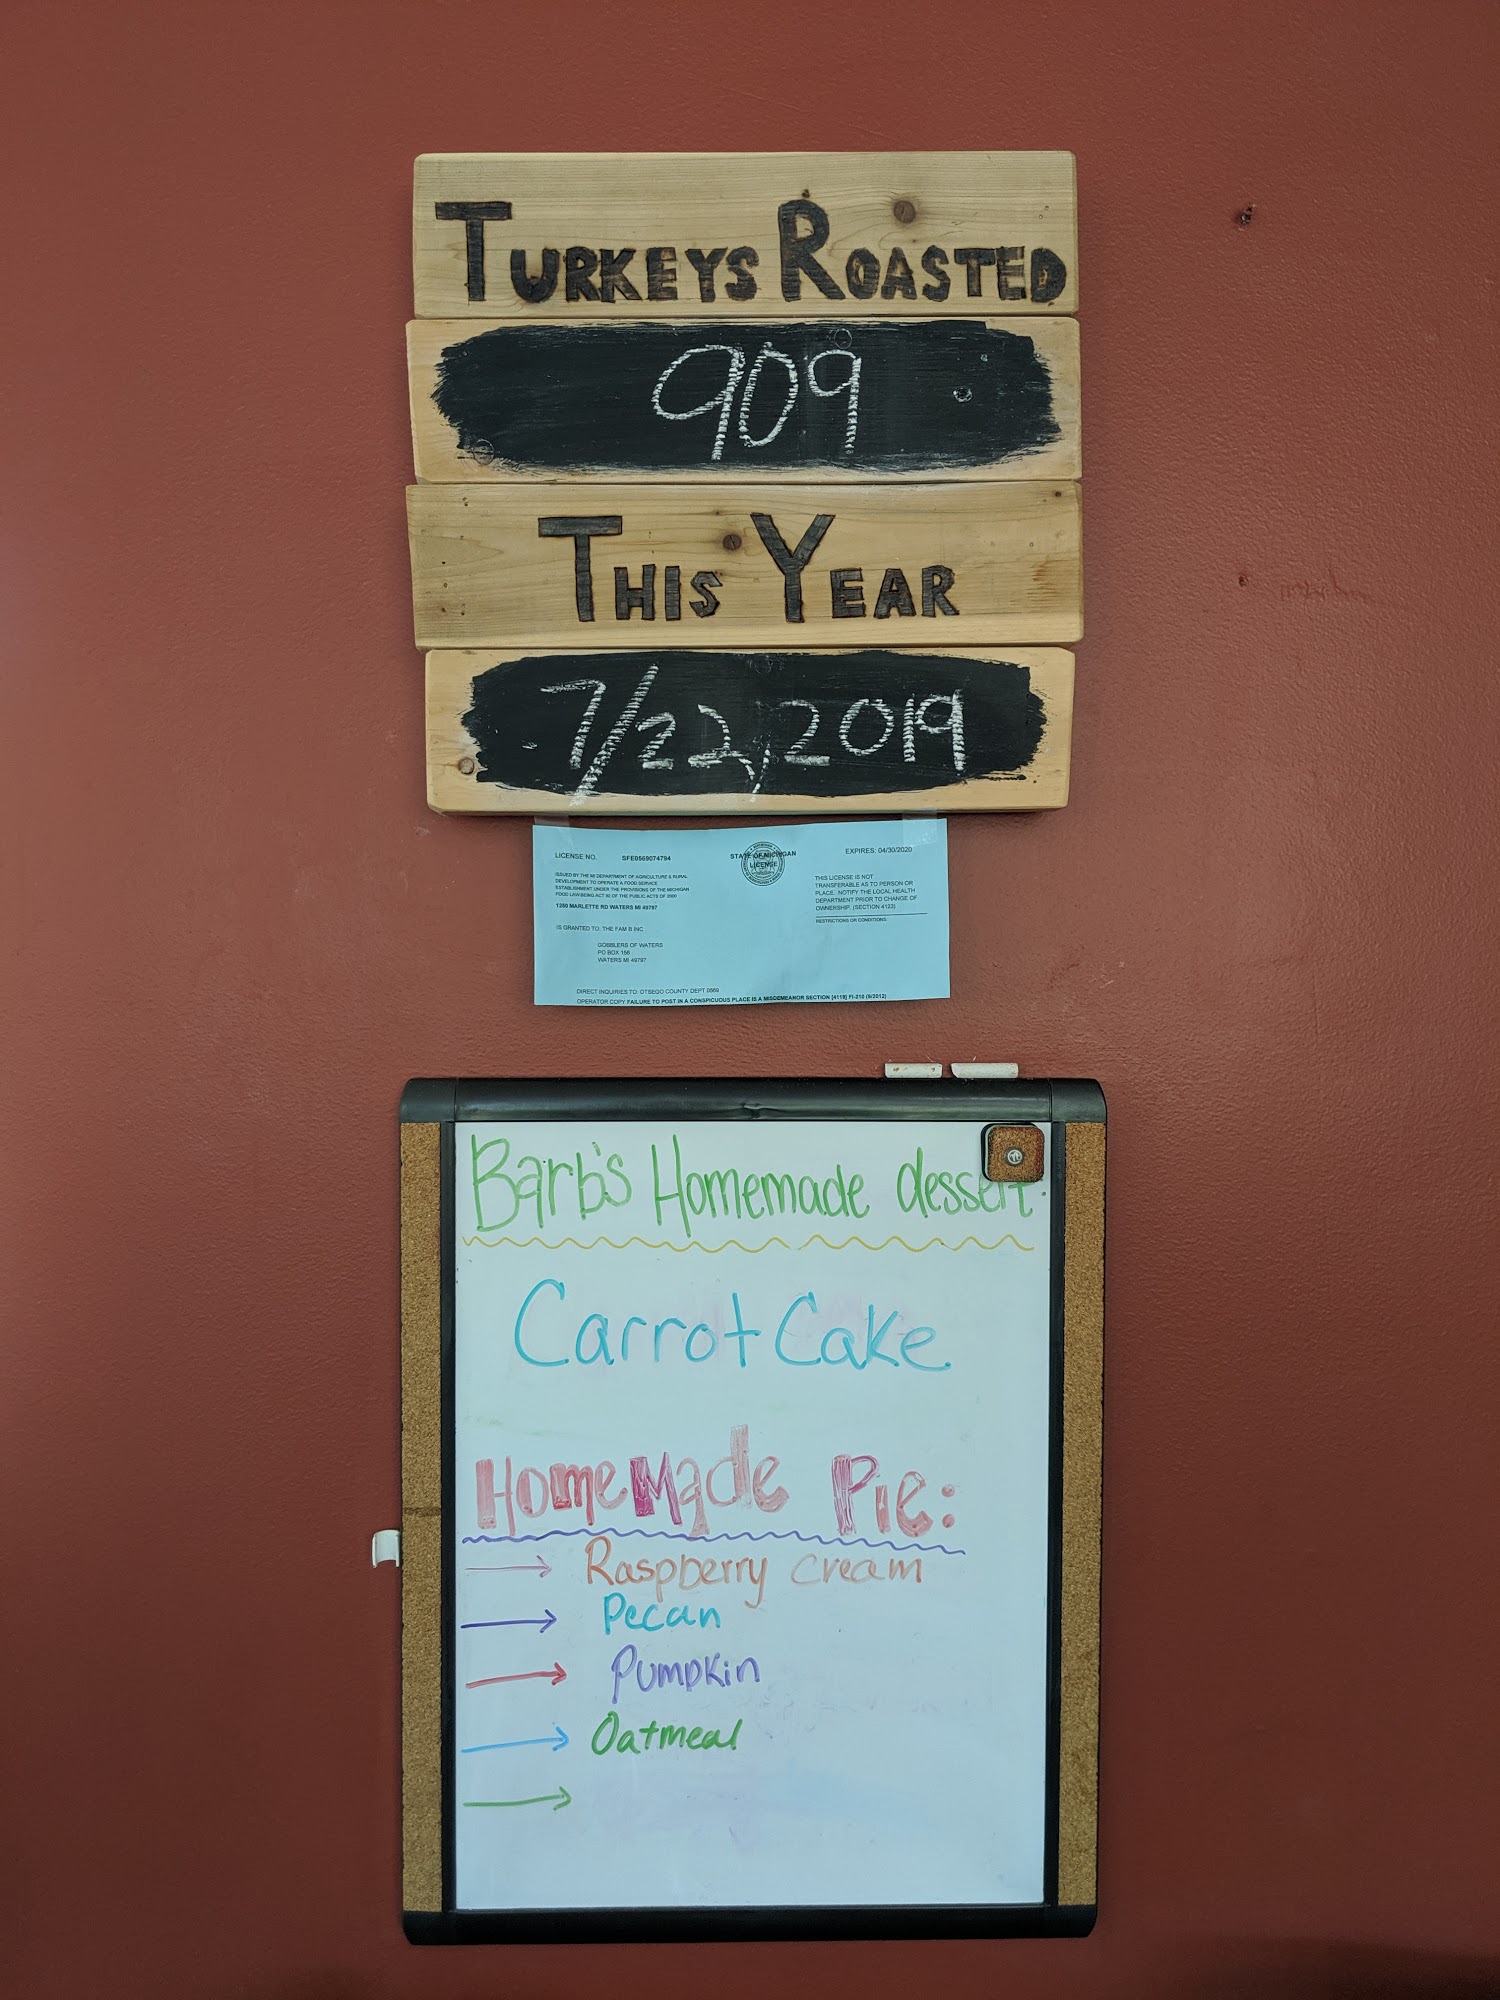 TURKEYS ROASTED
909
THIS YEAR
7/22, 2019
LICENSE NO. SFE0569074794
STATE OF MICHIGAN
LICENSE
EXPIRES: 04/30/2020
ISSUED BY THE MI DEPARTMENT OF AGRICULTURE & RURAL
DEVELOPMENT TO OPERATE A FOOD SERVICE
ESTABLISHMENT UNDER THE PROVISIONS OF THE MICHIGAN
FOOD LAW BEING ACT 92 OF THE PUBLIC ACTS OF 2000
1280 MARLETTE RD WATERS MI 49797
IS GRANTED TO: THE FAM B INC
GOBBLERS OF WATERS
PO BOX 156
WATERS MI 49797
THIS LICENSE IS NOT
TRANSFERABLE AS TO PERSON OR
PLACE. NOTIFY THE LOCAL HEALTH
DEPARTMENT PRIOR TO CHANGE OF
OWNERSHIP. (SECTION 4123)
RESTRICTIONS OR CONDITIONS
DIRECT INQUIRIES TO: OTSEGO COUNTY DEPT 0569
OPERATOR COPY FAILURE TO POST IN A CONSPICUOUS PLACE IS A MISDEMEANOR SECTION [4119] FI-210 (9/2012)
Barb's Homemade dessert.
Carrot Cake
HomeMade Pie:
→ Raspberry cream
→ Pecan
→ Pumpkin
→ Oatmeal
→